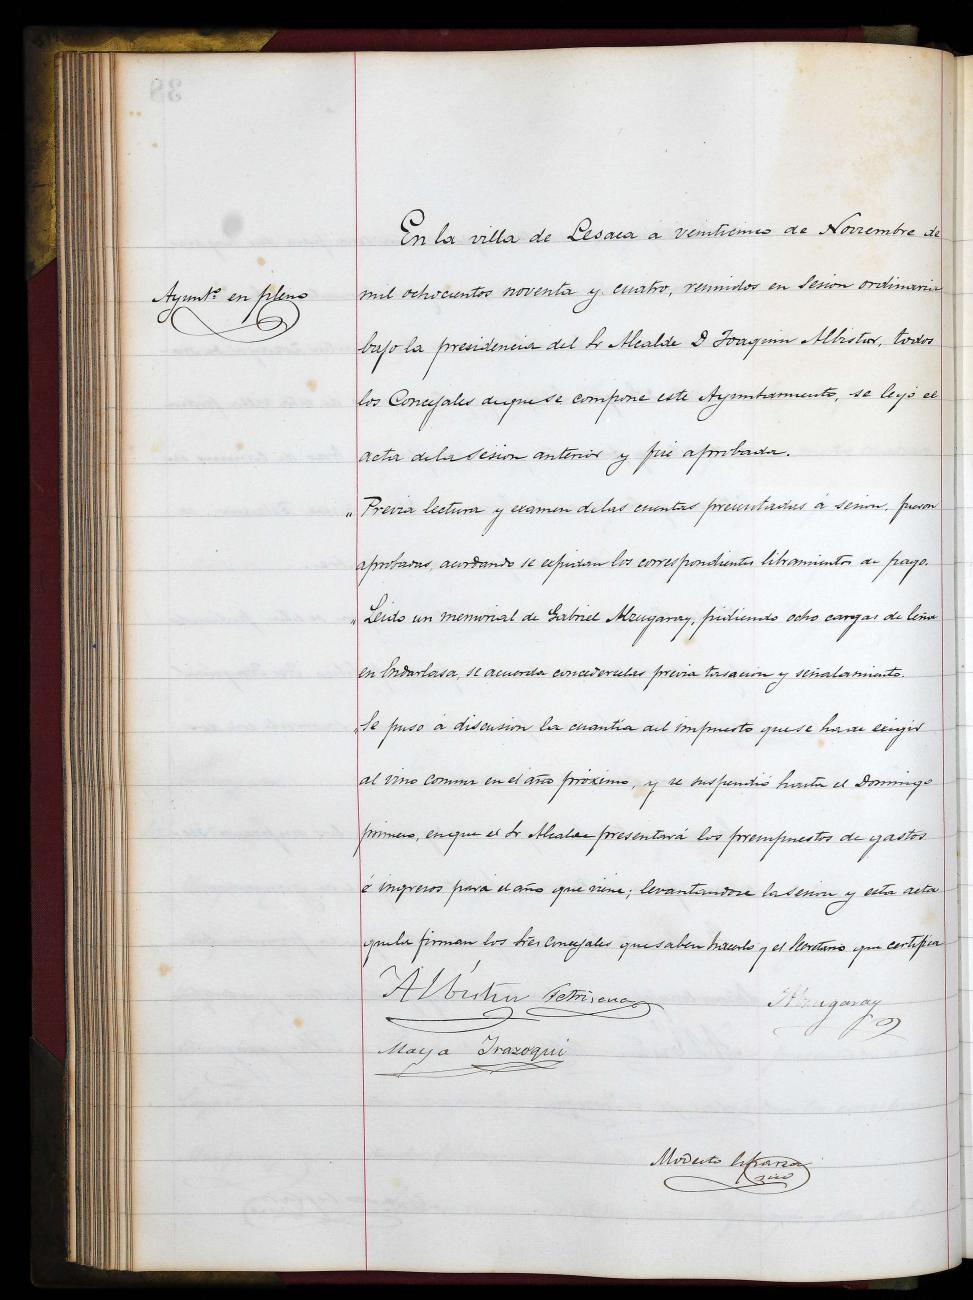 En la villa de Lesaca á veinticinco de Noviembre de
Ayunt.º en pleno
mil ochocientos noventa y cuatro, reunidos en sesion ordinaria
bajo la presidencia del Sr Alcalde D Joaquin Albistur, todos
los Concejales de que se compone este Ayuntamiento, se leyó el
acta de la sesion anterior y fué aprobada.
" Previa lectura y examen de las cuentas presentadas á sesion, fueron
aprobadas, acordando se espidan los correspondientes libramientos de pago.
" Leido un memorial de Gabriel Alzugaray, pidiendo ocho cargas de leña
en Endarlasa, se acuerda concederselas previa tasacion y señalamiento.
" Se puso á discusion la cuantía del impuesto que se ha de exigir
al vino comun en el año próximo, y se suspendió hasta el Domingo
primero, en que el Sr Alcalde presentará los presupuestos de gastos
é ingresos para el año que viene; levantandose la sesion y esta acta
que la firman los tres concejales que saben hacerlo y el Secretario que certifica
Albistur Petrirena Alzugaray
Maya Irazoqui
Modesto